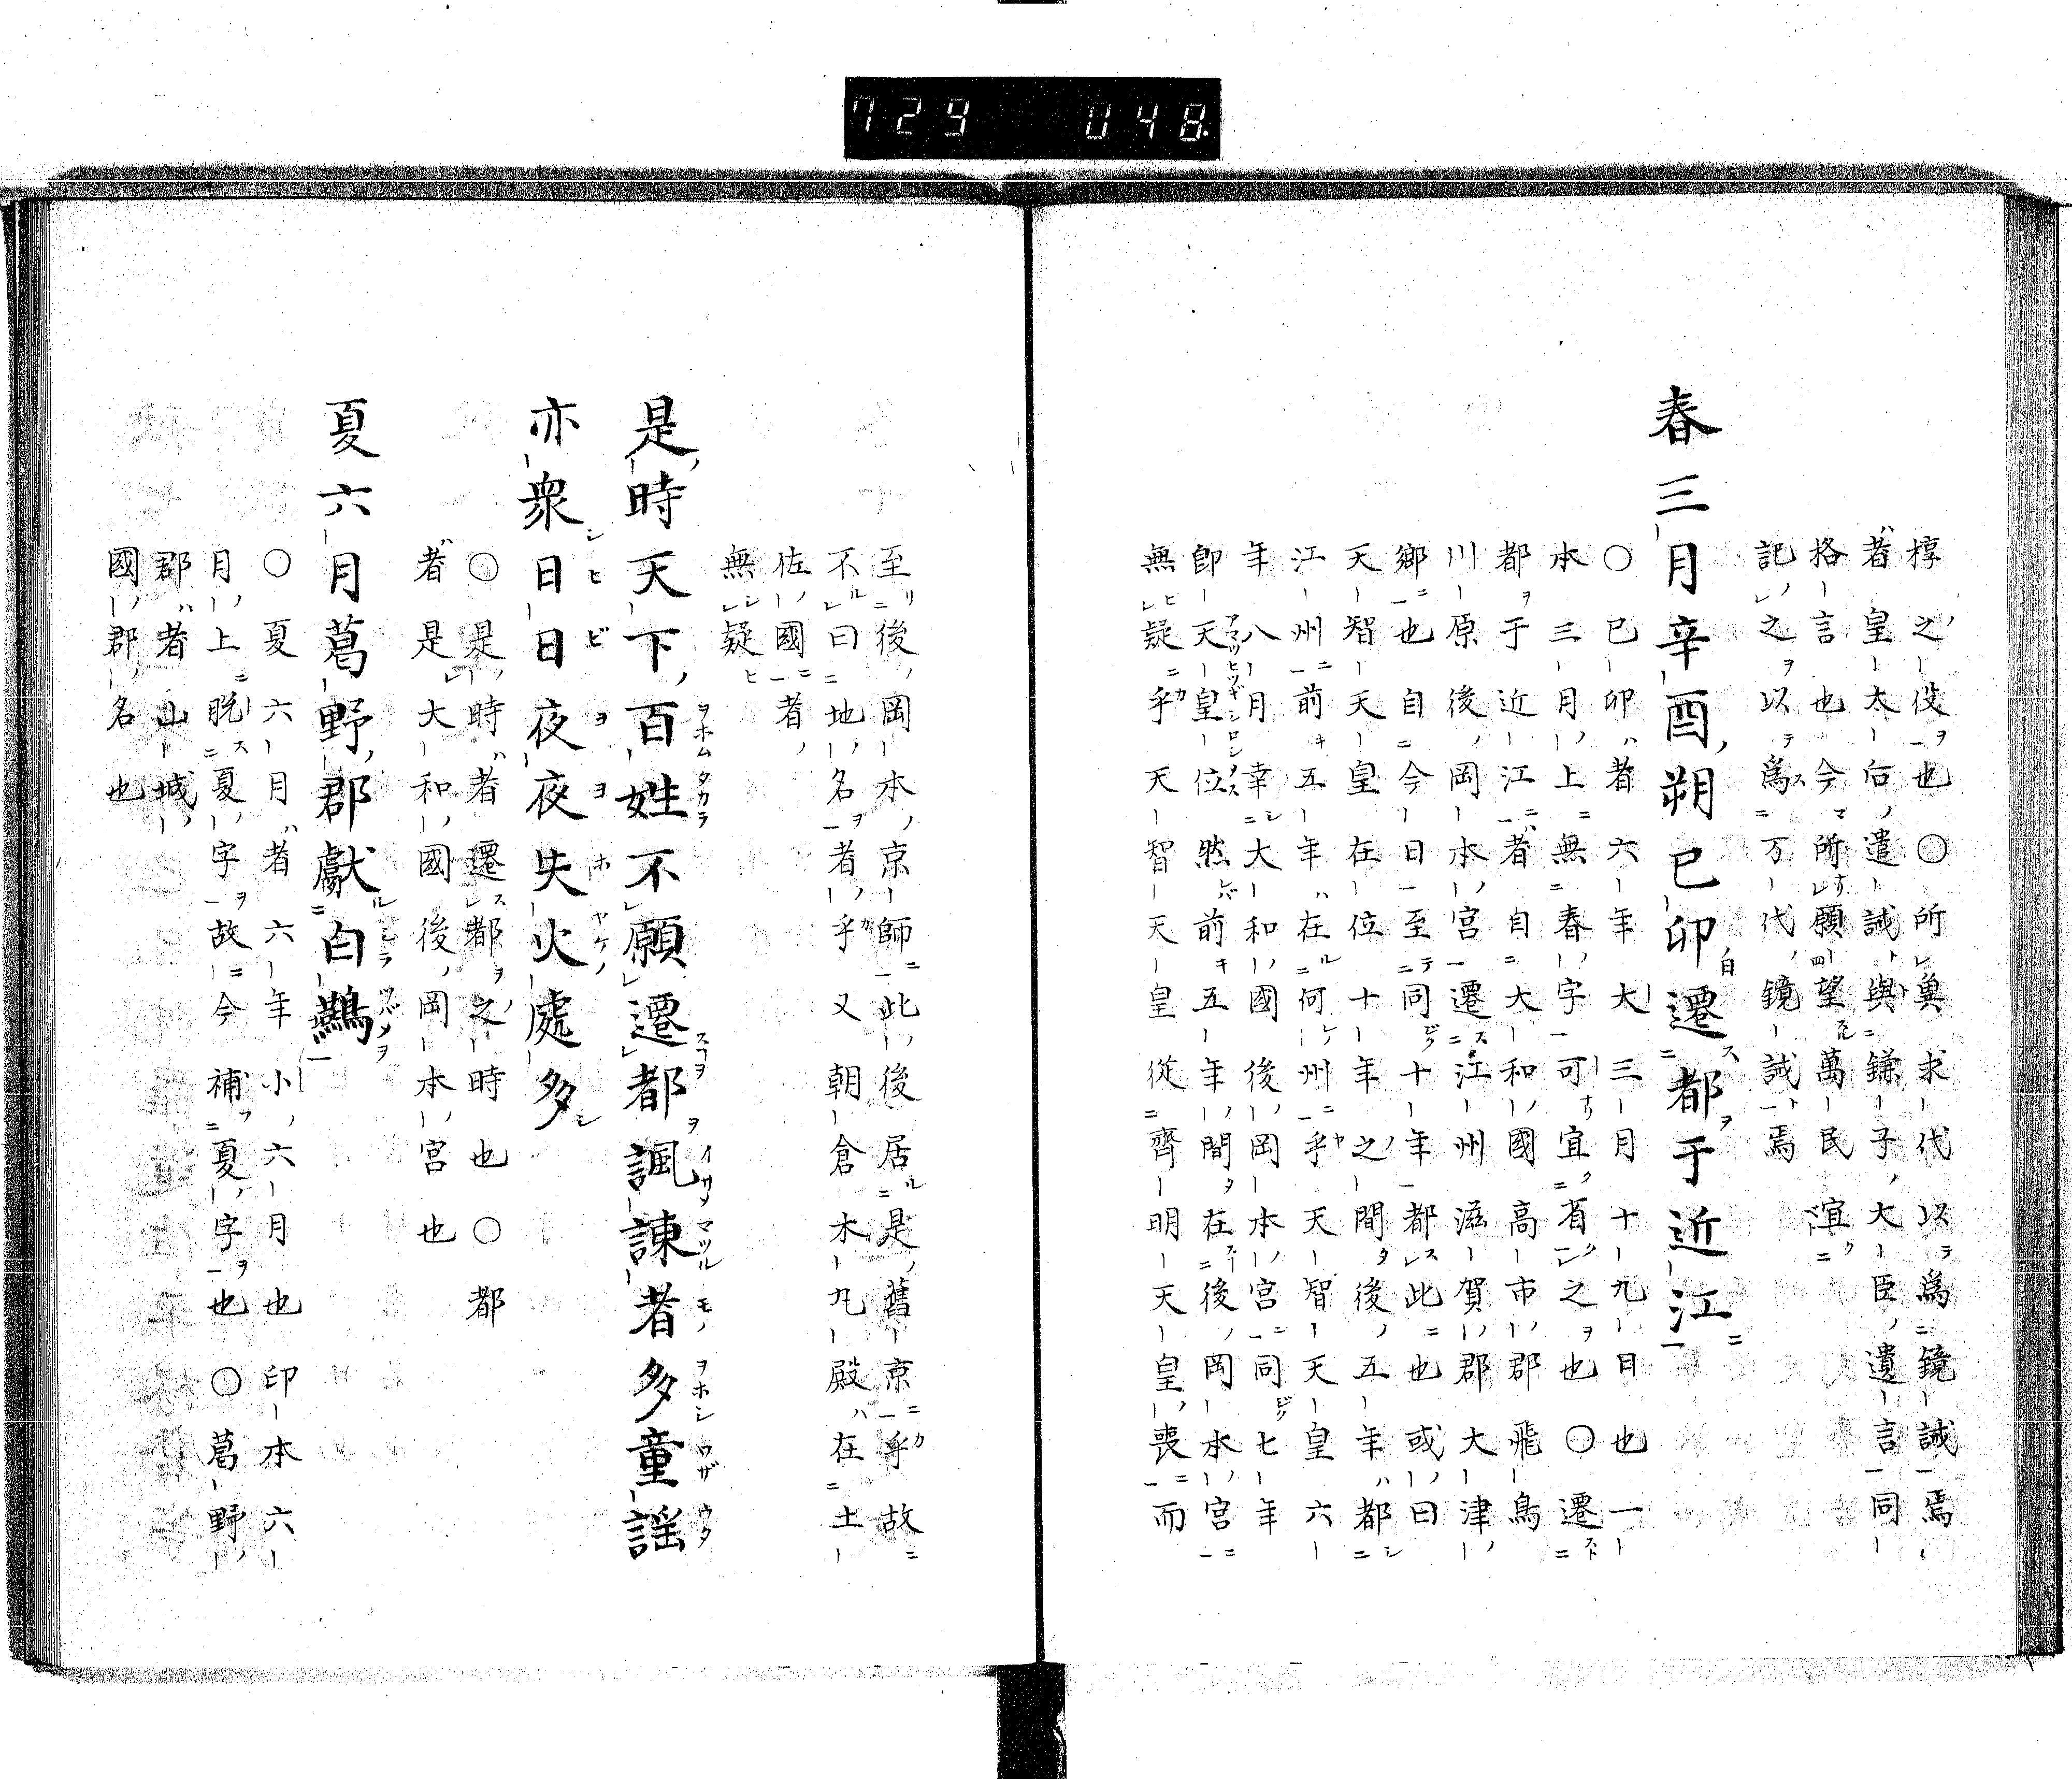 729 048
椁之役也○所奠求代以為鏡誡焉
者皇太后遣誡與鎌子大臣遺言同
格言也今所願望萬民宜
記之以為万代鏡誡焉
春三月辛酉朔己卯遷都于近江
○己卯者六年大三月十九日也一
本三月上無春字可宜省之也○遷
都于近江者自大和國高市郡飛鳥
川原後岡本宮遷江州滋賀郡大津
鄉也自今日至同十年都此也或曰
天智天皇在位十年之間後五年都
江州前五年在何州乎天智天皇六
年八月幸大和國後岡本宮同七年
即天皇位然前五年間在後岡本宮
無疑乎天智天皇從齊明天皇喪而
至後岡本京師此後居是舊京乎故
不曰地名者乎又朝倉木丸殿在土
佐國者
無疑
是時天下百姓不願遷都諷諫者多童謡
亦衆日日夜夜失火處多
○是時者遷都之時也○都
者是大和國後岡本宮也
夏六月葛野郡獻白鷰
○夏六月者六年小六月也印本六
月上脱夏字故今補夏字也○葛野
郡者山城
國郡名也